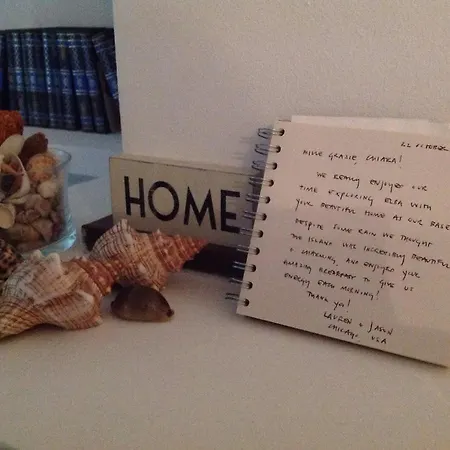 HOME
22 OCTOBER
MILLE GRAZIE, CHIARA!
WE REALLY ENJOYED OUR
TIME EXPLORING ELBA WITH
YOUR BEAUTIFUL HOME AS OUR BASE.
DESPITE SOME RAIN WE THOUGHT
THE ISLAND WAS INCREDIBLY BEAUTIFUL
& RELAXING, AND ENJOYED YOUR
AMAZING BREAKFAST TO GIVE US
ENERGY EACH MORNING!
THANK YOU!
LAUREN + JASON
CHICAGO, USA